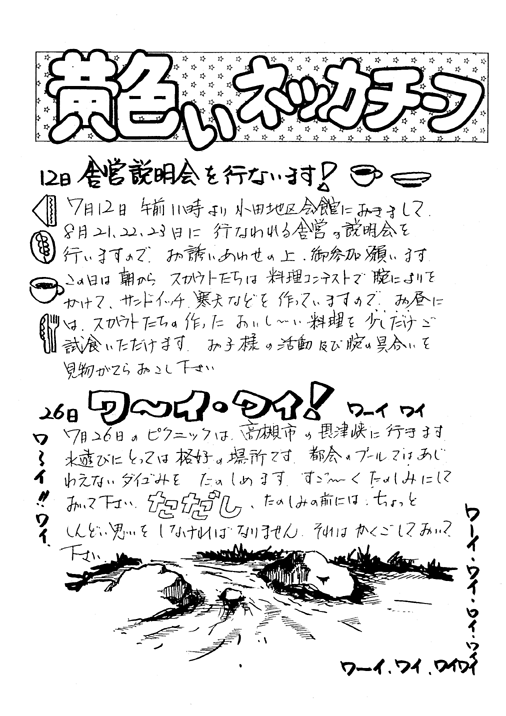 黄色いネッカチーフ
12日 舎営説明会を行ないます!
7月12日 午前11時より 小田地区会館におきまして、
8月21、22、23日に 行なわれる舎営の説明会を
行いますので、お誘いあわせの上、御参加願います
この日は朝から スカウトたちは 料理コンテストで 腕によりを
かけて、サンドイッチ、寒天などを 作っていますので、お昼に
は、スカウトたちの作った おいし〜い 料理を 少しだけご
試食いただけます。お子様の活動及び腕の具合いを
見物がてら おこし下さい
26日 ワ〜イ・ワイ! ワーイ ワイ
7月26日のピクニックは、高槻市の摂津峡に行きます
水遊びにとっては 格好の場所です。都会のプールではあじ
わえないダイゴみを たのしめます。すご〜く たのしみにして
おいて下さい。ただし、たのしみの前には、ちょっと
しんどい思いを しなければなりません。それは かくごしておいて
下さい
ワ〜イ!!ワイ
ワーイ・ワイ・ワイ・ワイ
ワーイ、ワイ、ワイワイ